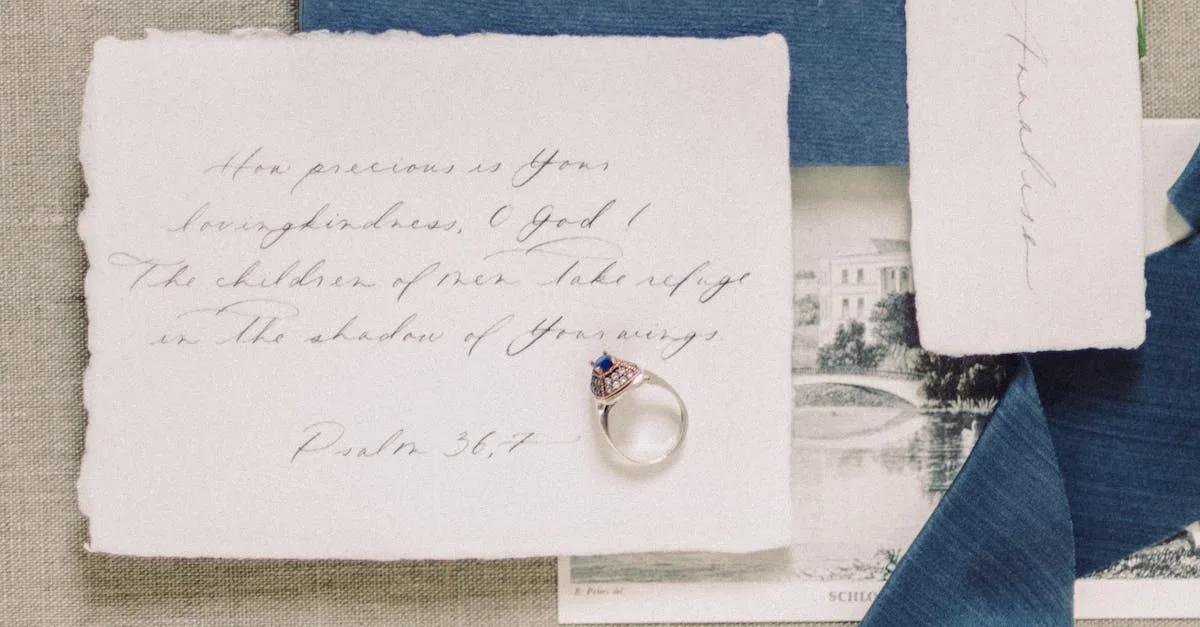 How precious is Your
lovingkindness, O God!
The children of men take refuge
in the shadow of Your wings.
Psalm 36,7
Annalisa
E. Peters del.
SCHLO